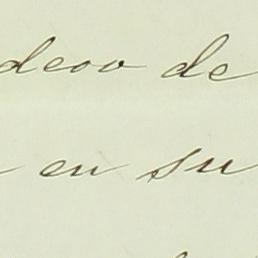 deoo de
en su